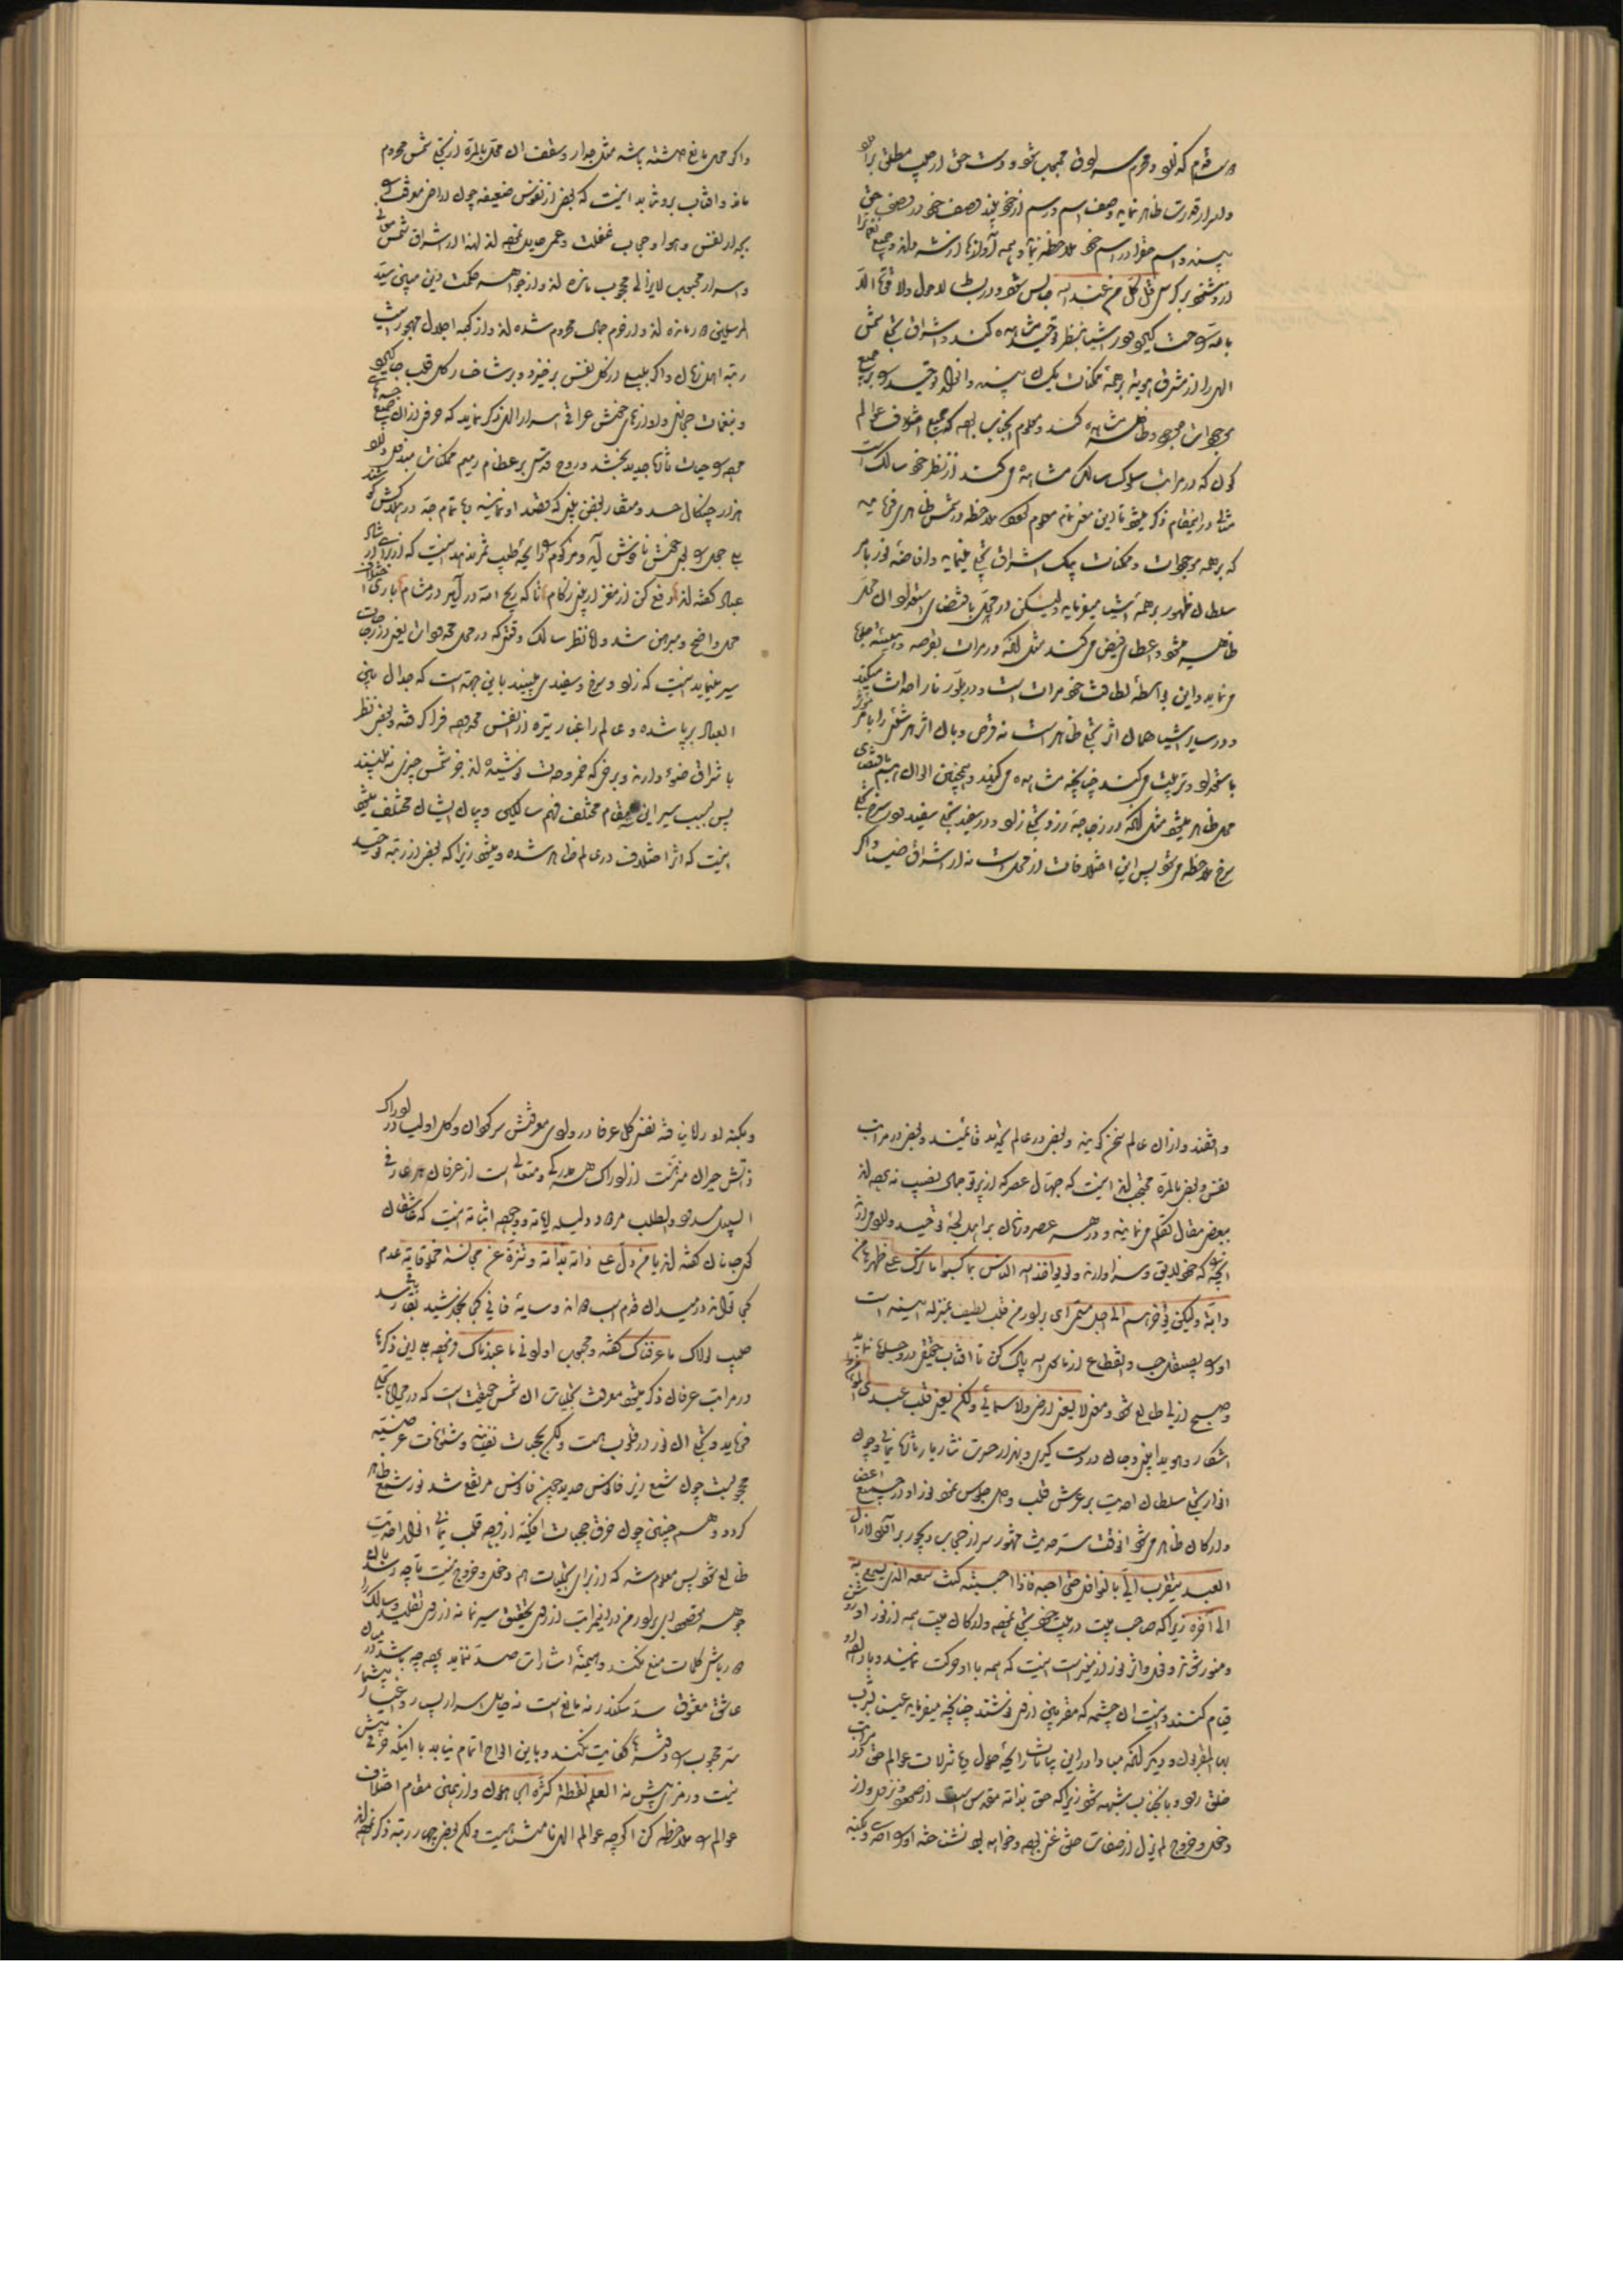 در این مقام که نفی و محو سر لوف محبوب شود و دست حق از جیب مطلق برآرد
و اسرار قدرت ظاهر نماید وصف و اسم و رسم از خود نبیند وصف خود در وصف حق
بیند و اسم حق را در اسم خود ملاحظه نماید و همه آوازها از شه داند و جمیع نغمات را
از او شنود بر کرسی قل کل من عند الله جالس شود و در بساط لا حول و لا قوة الا
بالله راحت گیرد و در اشیا بنظر توحید مشاهده کند و اشراق تجلی شمس
الهی را از مشرق هویه بر همهٔ ممکنات یکسان بیند و انوار توحید را بر جمیع
موجودات موجود و ظاهر مشاهده کند و معلوم آنجناب بوده که جمیع اختلاف عوالم
کون که در مراتب سلوک سالک مشاهده می کند از نظر خود سالک است
مثالی در این مقام ذکر میشود تا این معنی تمام معلوم گردد ملاحظه در شمس ظاهری فرمائید
که بر همه موجودات و ممکنات بیک اشراق تجلی مینماید و افاضه نور بامر
سلطان ظهور بر همه اشیا میفرماید ولیکن در هر محلی باقتضای استعداد آن محل
ظاهر میشود و اعطای فیض می کند مثل آنکه در مرآت بقرصه و هیئته جلوه
می نماید و این بواسطهٔ لطافت خود مرآت است و در بلور نار احداث میکند
و در سایر اشیا همان اثر تجلی ظاهر است نه قرص و بآن اثر هر شیئی را بامر مؤثر
باستعداد او تربیت می کند چنانچه مشاهده می کنید و همچنین الوان هم باقتضای
محل ظاهر میشود مثل آنکه در زجاجه زرد تجلی زرد و در سفید تجلی سفید و در سرخ تجلی
سرخ ملاحظه می شود پس این اختلافات از محل است نه از اشراق ضیا و اگر
و اگر محل مانع داشته باشد مثل جدار و سقف آن محل بالمره از تجلی شمس محروم
ماند و آفتاب بر او نتابد اینست که بعضی از نفوس ضعیفه چون اراضی معرفت را
بجدار نفس و هوا و حجاب غفلت و عمی حایل نموده اند لهذا از اشراق شمس معانی
و اسرار محبوب لایزالی محجوب مانده اند و از جواهر حکمت دین مبین سید
المرسلین دور مانده اند و از حرم جمال محروم شده اند و از کعبه اجلال مهجور اینست
رتبه اهل زمان و اگر بلبلی از گل نفس برخیزد و بر شاخسار گل قلب جای گیرد
و بنغمات حجازی و آوازهای خوش عراقی اسرار الهی ذکر نماید که حرفی از آن جمیع جسدهای
مرده را حیات تازه جدید بخشد و روح قدسی بر عظام رمیم ممکنات مبذول دارد
هزار چنگال حسد و منقار بغض بینی که قصد او نمایند و با تمام جد در هلاکش کوشند
بلی جعل را بوی خوش ناخوش آید و مزکوم را رائحه طیب ثمر ندهد اینست که از برای ارشاد
عباد گفته اند دفع کن از مغز و از بینی زکام تا که ریح الله در آید در مشام باری اختلاف
محل واضح و مبرهن شد و اما نظر سالک وقتی که در محل محدود است یعنی در زجاجات
سیر مینماید اینست که زرد و سرخ و سفیدی میبیند باین جهت است که جدال بین
العباد برپا شده و عالم را غبار تیره از انفس محدوده فرا گرفته و بعضی نظر
باشراق ضوء دارند و برخی که خمر وحدت نوشیده اند جز شمس چیزی نمی بینند
پس بسبب سیر این سه مقام مختلف فهم سالکین و بیان ایشان مختلف میشود
اینست که اثر اختلاف در عالم ظاهر شده و میشود زیرا که بعضی در رتبه توحید
واقفند و از آن عالم سخن گویند و بعضی در عالم تحدید قائمند و بعضی در مراتب
نفس و بعضی بالمره محتجب اند اینست که جهال عصر که از پرتو جمال نصیب نبرده اند
ببعضی مقال تکلم می نمایند و در هر عصر و زمان بر اهل لجهٔ توحید وارد می آرند
آنچه که خود بآن لایق و سزاوارند و لو یؤاخذ الله الناس بما کسبوا ما ترک علی ظهرها من
دابة و لکن یؤخرهم الی اجل مسمی ای برادر من قلب لطیف بمنزله آئینه است
او را بصیقل حب و انقطاع از ما سوی الله پاک کن تا آفتاب حقیقی در او جلوه نماید
و صبح ازلی طالع شود و معنی لا یسعنی ارضی و لا سمائی و لکن یسعنی قلب عبدی المؤمن را
آشکار و هویدا بینی و جان در دست گیری و بهزار حسرت نثار یار تازه نمائی و چون
انوار تجلی سلطان احدیه بر عرش قلب و دل جلوس نمود نور او در جمیع اعضا
و ارکان ظاهر می شود آنوقت سر حدیث مشهور سر از حجاب دیجور برآرد لا زال
العبد یتقرب الی بالنوافل حتی احببته فاذا احببته کنت سمعه الذی یسمع به
الی آخره زیرا که صاحب بیت در بیت خود تجلی نموده و ارکان بیت همه از نور او روشن
و منور شده و فعل و اثر نور از منیر است اینست که همه باو حرکت نمایند و باراده او
قیام کنند و اینست آن چشمه که مقربین از آن نوشند چنانچه میفرماید عینا یشرب
بها المقربون و دیگر آنکه مبادا در این بیانات رائحه حلول و یا تنزلات عوالم حق در مراتب
خلق رود و بر آنجناب شبهه شود زیرا که حق بذاته مقدس است از صعود و نزول و از
دخول و خروج لم یزل از صفات خلق غنی بوده و خواهد بود نشناخته او را احدی و بکنه
و بکنه او راه نیافته نفسی کل عرفا در وادی معرفتش سرگردان و کل اولیا در ادراک
ذاتش حیران منزه است از ادراک هر مدرکی و متعالی است از عرفان هر عارفی
السبیل مسدود و الطلب مردود دلیله آیاته و وجوده اثباته اینست که عاشقان
روی جانان گفته اند یا من دل علی ذاته بذاته و تنزه عن مجانسة مخلوقاته عدم
کجا تواند در میدان قدم اسب دواند و سایهٔ فانی کجا بخورشید باقی رسد
حبیب لولاک ما عرفناک گفته و محبوب او ادنی ما عبدناک فرموده بلی این ذکرها
در مراتب عرفان ذکر میشود معرفت تجلیات آن شمس حقیقت است که در مرایا تجلی
فرماید و تجلی آن نور در قلوب هست و لکن بحجبات نفسانیه و شئونات عرضیه
محجوبست چون شمع زیر فانوس حدید چون فانوس مرتفع شد نور شمع ظاهر
گردد و هم چنین چون خرق حجبات افکیه از وجه قلب نمائی انوار احدیه
طالع شود پس معلوم شد که از برای تجلیات هم دخول و خروج نیست تا چه رسد بآن
جوهر وجود و سر مقصود ای برادر من در این مراتب از روی تحقیق سیر نما نه از روی تقلید و سالک را
دورباش کلمات منع نکند و هیمنهٔ اشارات سد ننماید پرده چه باشد میان
عاشق و معشوق سد سکندر نه مانع است و نه حایل اسرار بسیار و اغیار بیشمار
سر محبوب را دفترها کفایت نکند و باین الواح اتمام نیابد با اینکه حرفی بیش
نیست و رمزی بیش نه العلم نقطة کثرها الجاهلون و از همین مقام اختلاف
عوالم را ملاحظه کن اگرچه عوالم الهی نامتناهیست و لکن بعضی چهار رتبه ذکر نموده اند